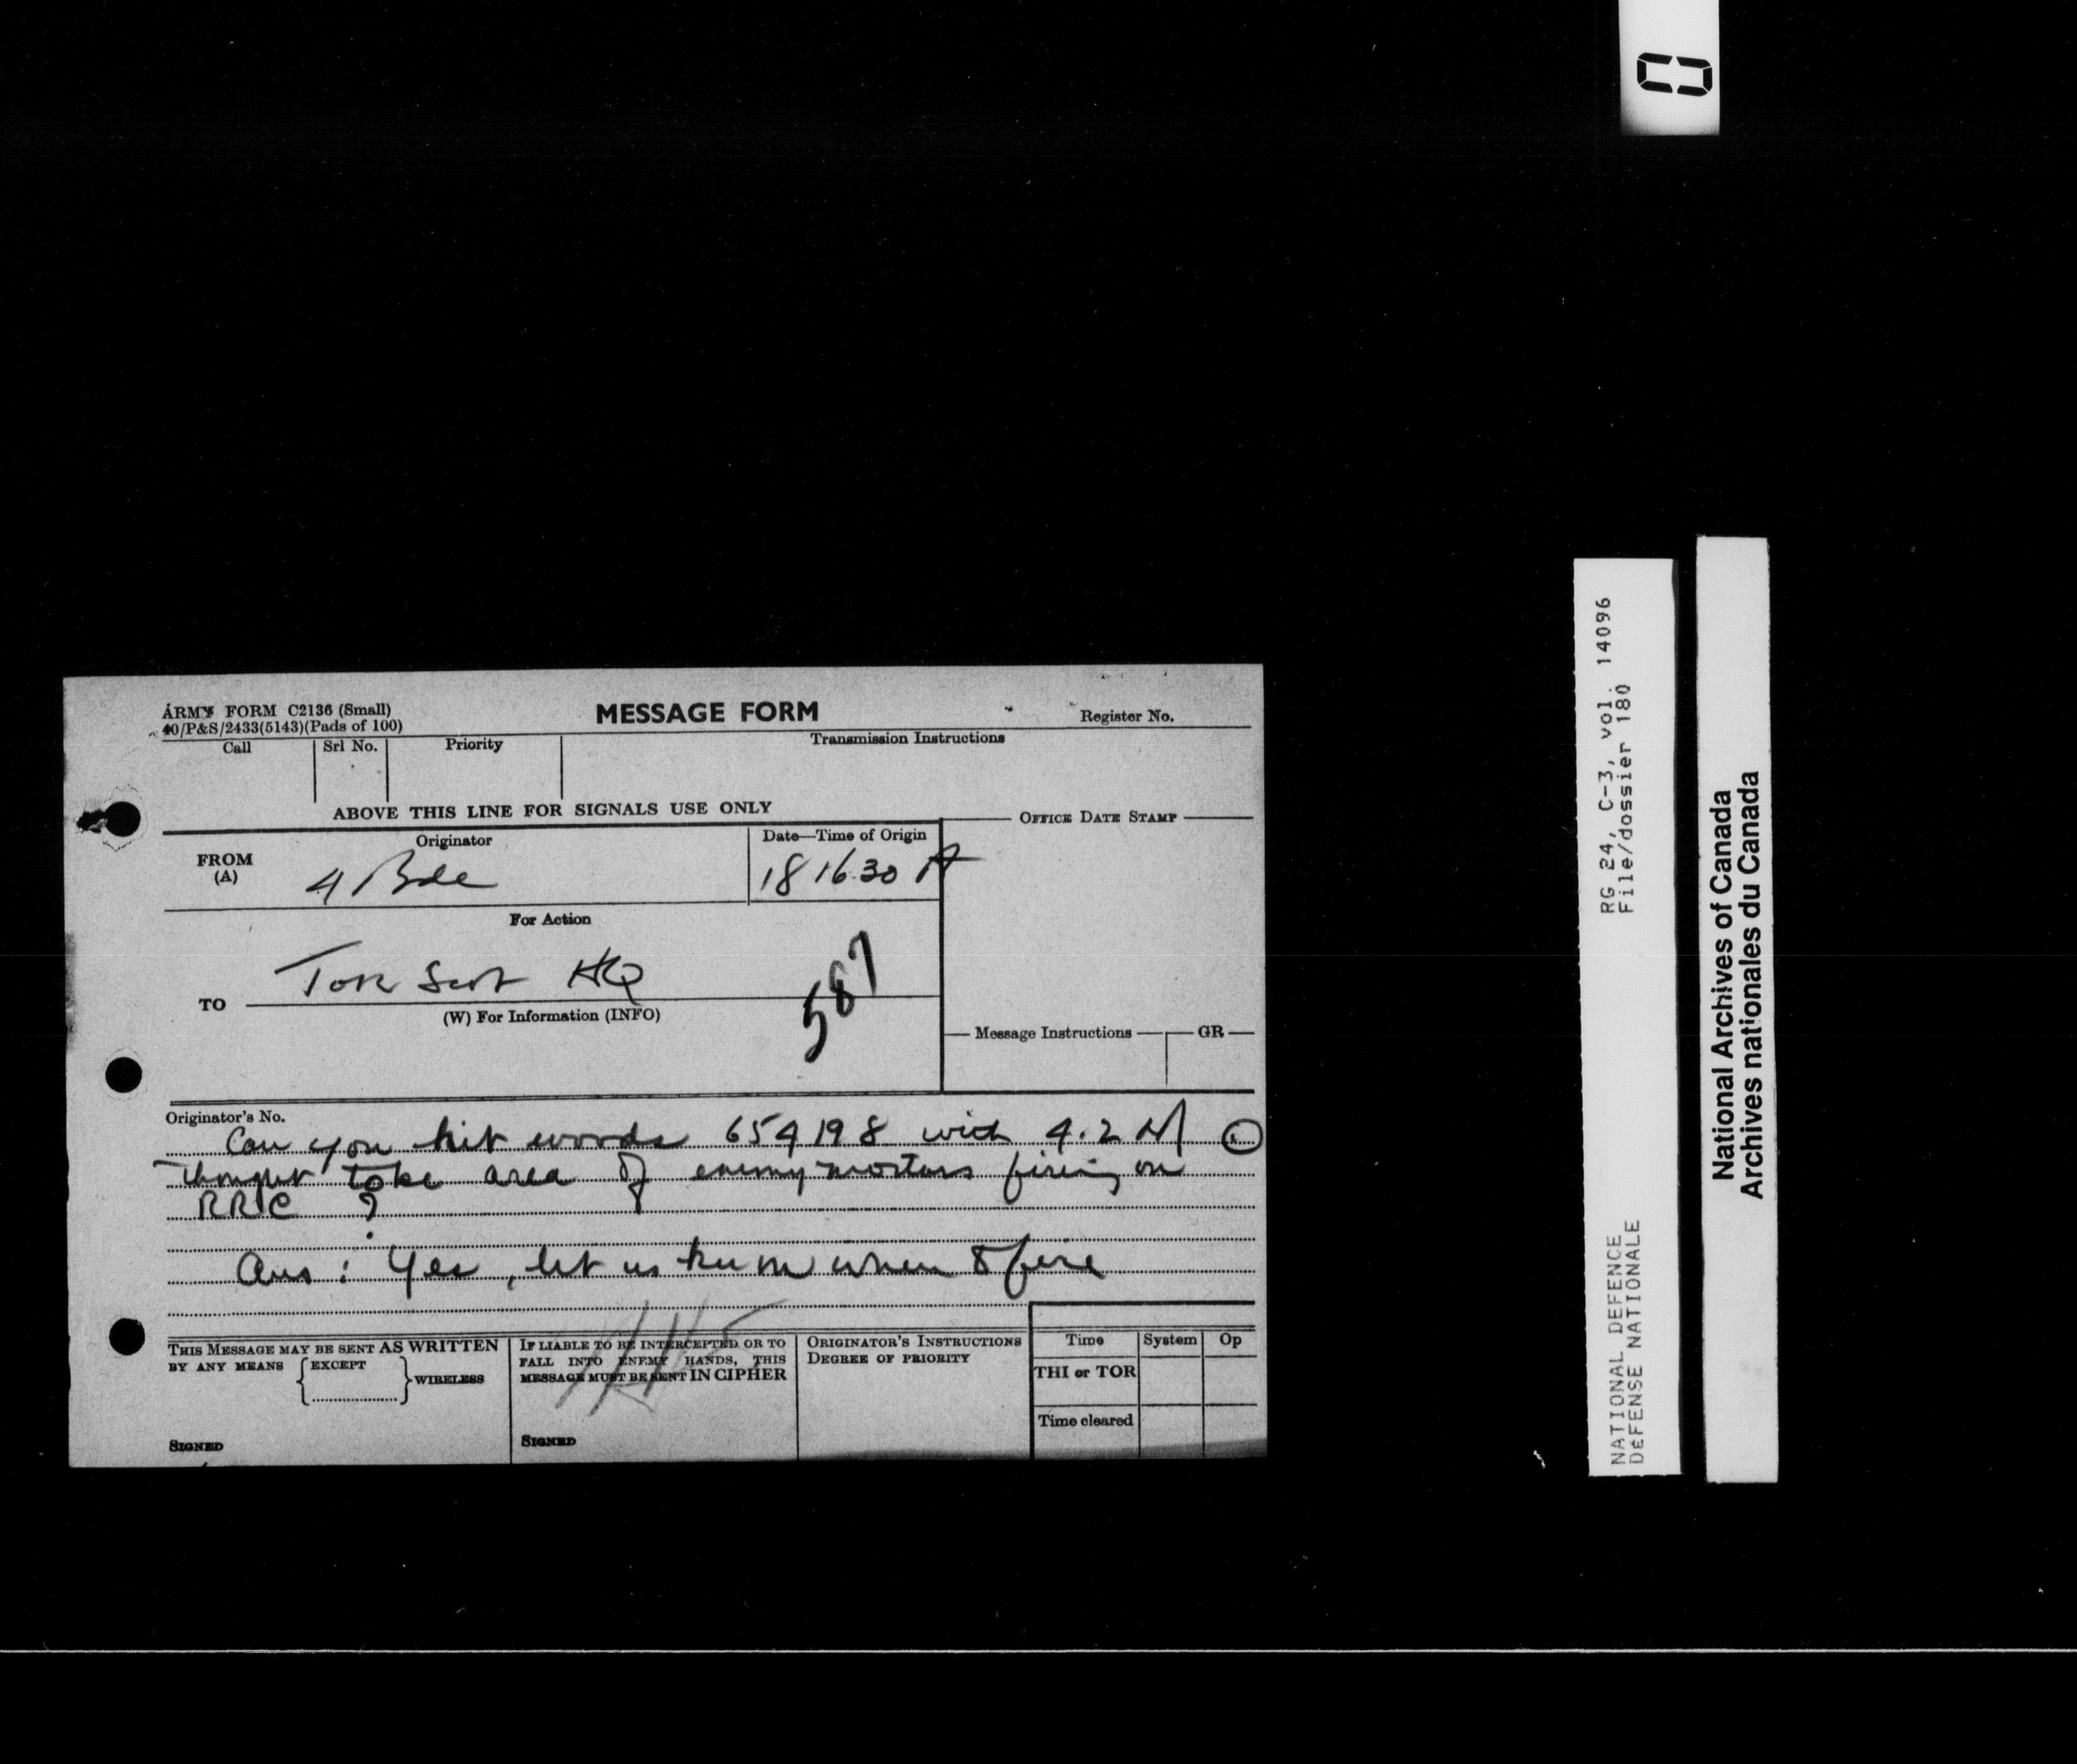 ARMY FORM C2136 (Small)
40/P&S/2433(5143)(Pads of 100)
MESSAGE FORM
Register No.
Call
Srl No.
Priority
Transmission Instructions
ABOVE THIS LINE FOR SIGNALS USE ONLY
OFFICE DATE STAMP
FROM
(A)
Originator
4 Bde
Date—Time of Origin
18 1630 A
For Action
Tor Scot HQ
TO
(W) For Information (INFO)
587
Message Instructions
GR
Originator's No.
Can you hit woods 654198 with 4.2 M
thought to be area of enemy mortars firing on
RRC ?
Ans : Yes, let us know when to fire
THIS MESSAGE MAY BE SENT AS WRITTEN
BY ANY MEANS { EXCEPT } WIRELESS
SIGNED
IF LIABLE TO BE INTERCEPTED OR TO
FALL INTO ENEMY HANDS, THIS
MESSAGE MUST BE SENT IN CIPHER
SIGNED
ORIGINATOR'S INSTRUCTIONS
DEGREE OF PRIORITY
Time System Op
THI or TOR
Time cleared
RG 24, C-3, vol. 14096
File/dossier 180
NATIONAL DEFENCE
DéFENSE NATIONALE
National Archives of Canada
Archives nationales du Canada